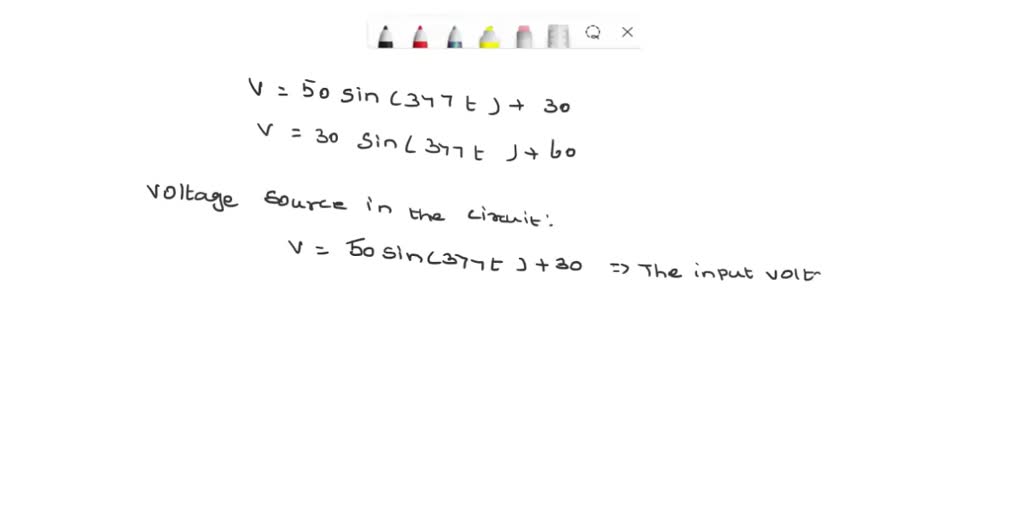 V = 50 sin (377 t) + 30
V = 30 sin (377 t) + 60
Voltage source in the circuit:
V = 50 sin (377 t) + 30 => The input volt